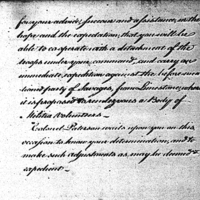 for your advice, succour and assistance, in the
hope, and the expectation, that you will be
able to co-operate with a detachment of the
troops under your command, and carry an
immediate expedition against the before men-
tioned party of Savages, from Limestone, where
it is proposed to rendezvous a Body of
Militia Volunteers —
Colonel Paterson waits upon you on this
occasion to know your determination, and to
make such adjustments as may be deemed
expedient —